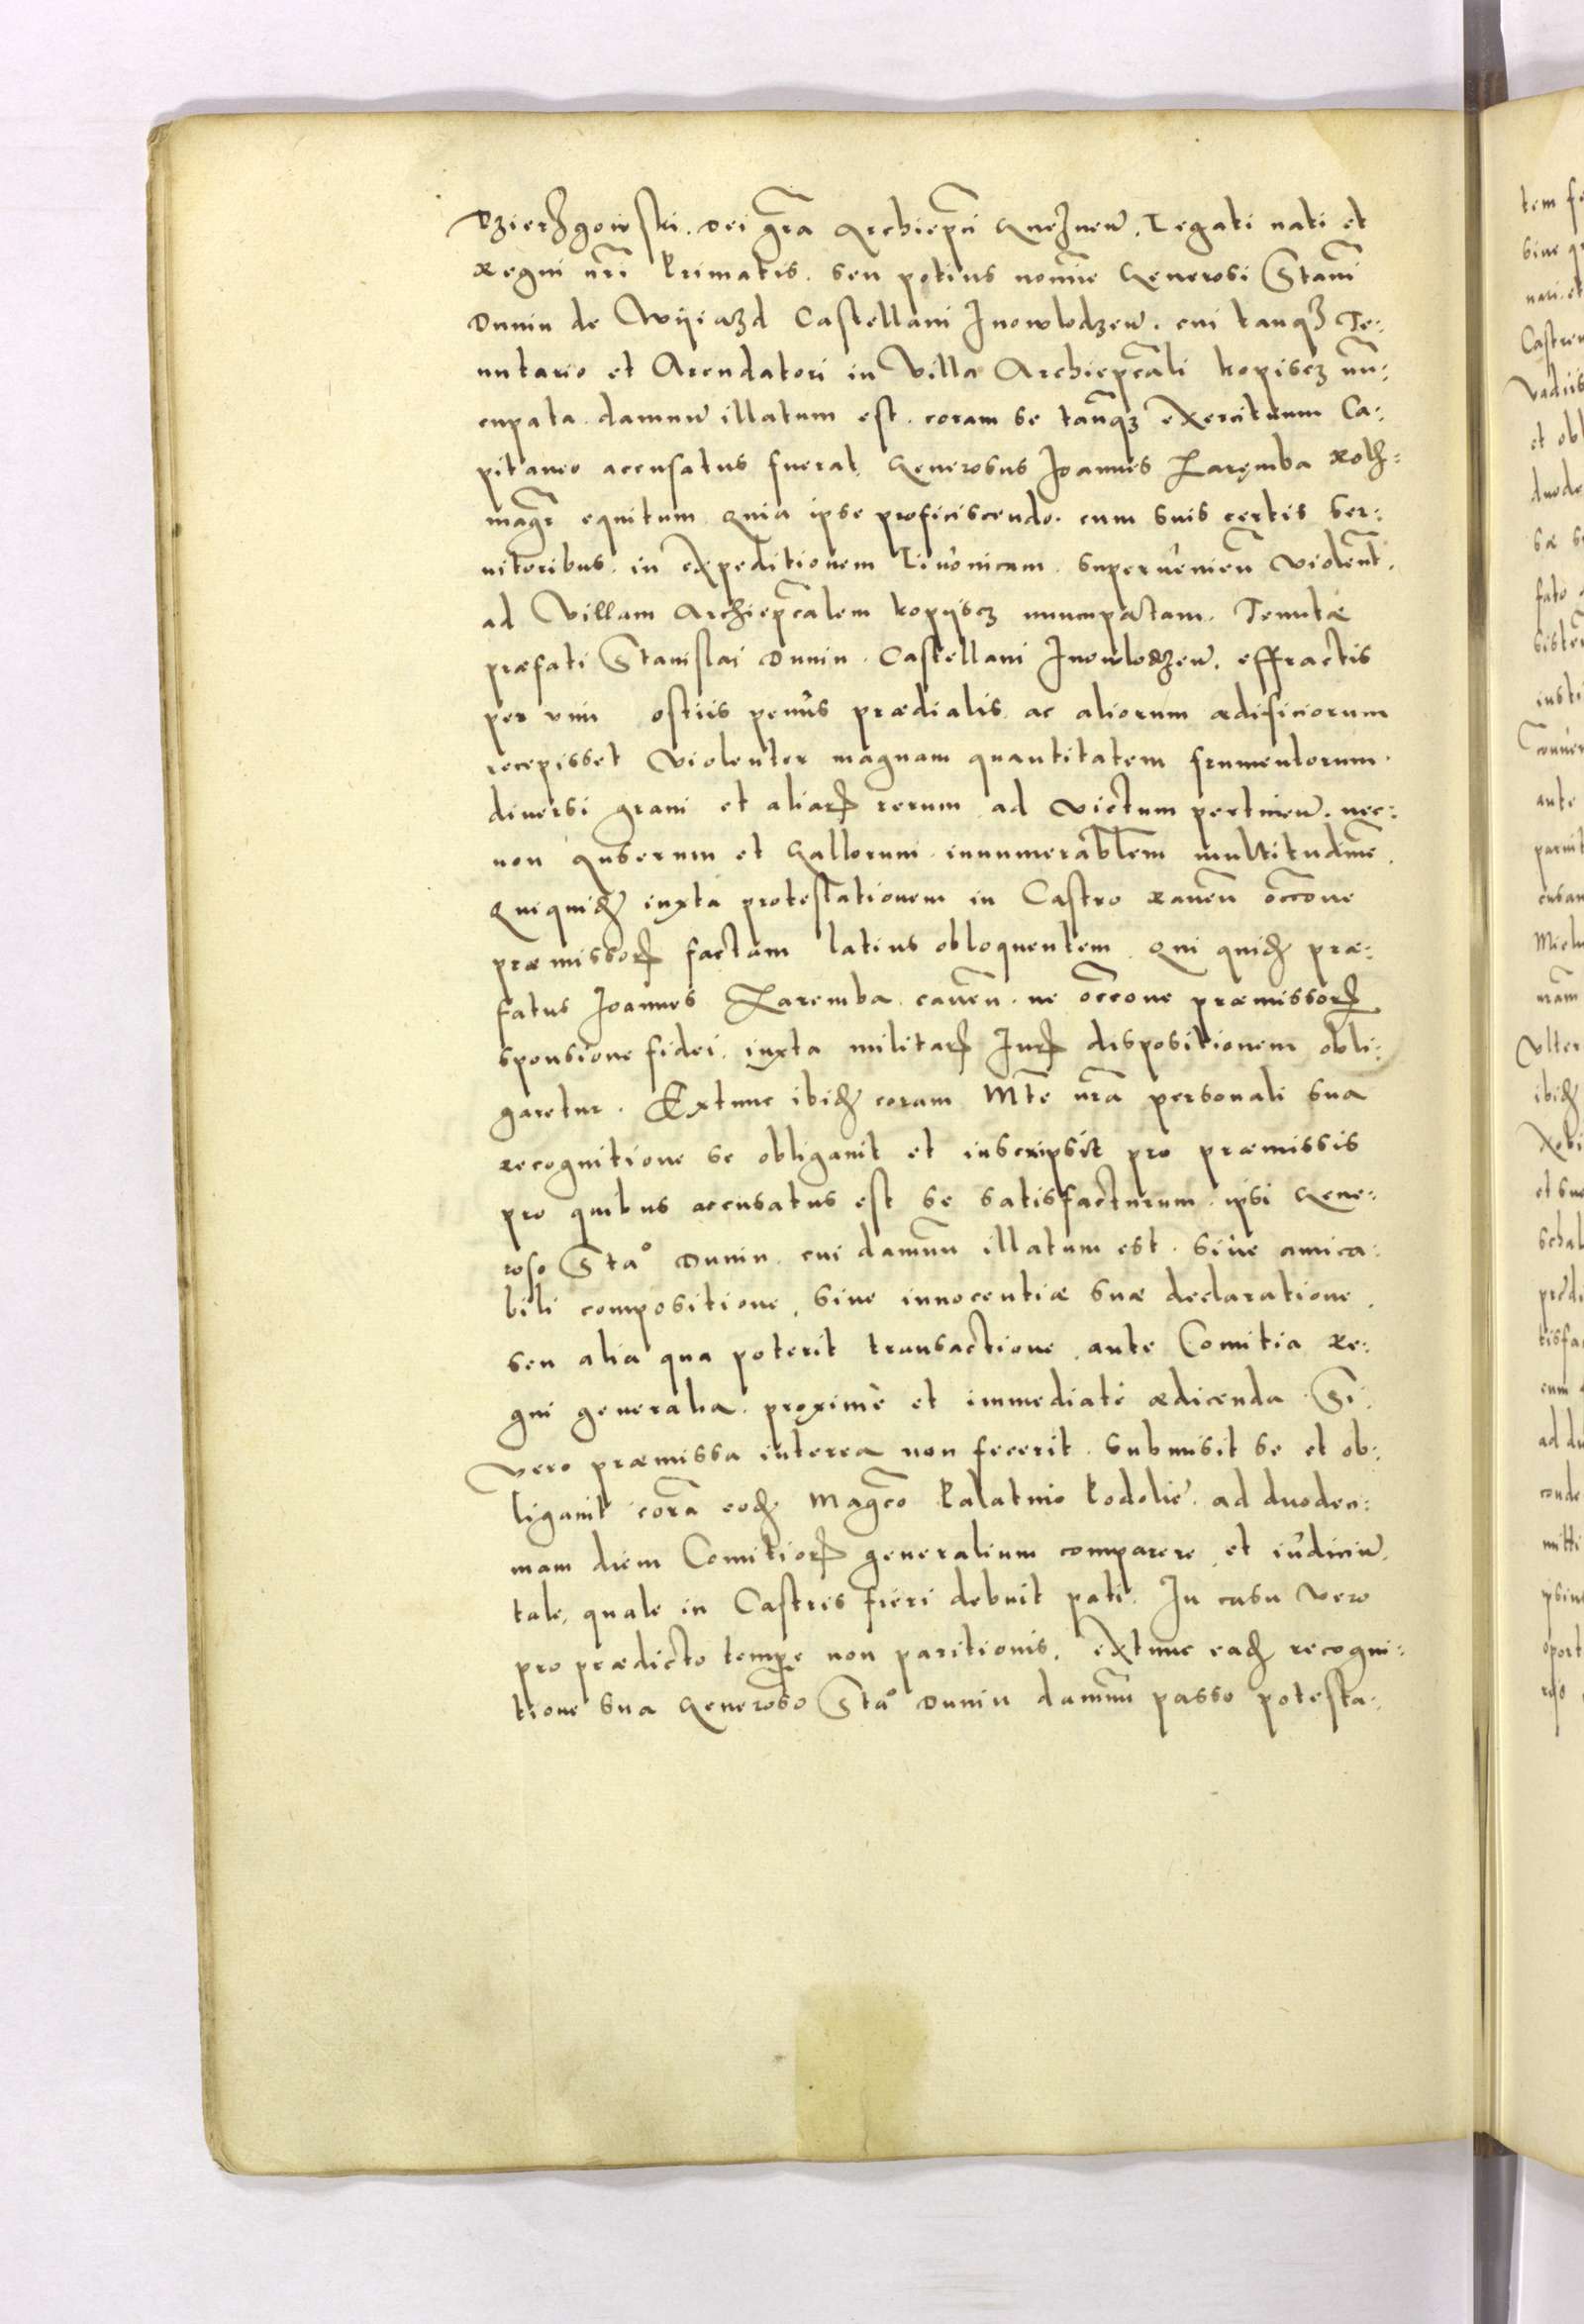 Dzierzgowski. Dei gra Archiepci Gneznen. Legati nati et
Regni nri Primatis. seu potius nomine Generosi Stani
Dunin de Wyiazd Castellani Inowlodzen. cui tanq3 Te:
nutario et Arendatori in Villa Archiepcali Kopisc3 nun:
cupata. damnu illatum est. coram se tanq3 exercituum Ca:
pitaneo accusatus fuerat. Generosus Joannes Zaremba Roth:
magr equitum. Quia ipse proficiscendo. cum suis certis ser:
uitoribus. in expeditionem Liuonicam. superuenien violent.
ad Villam Archiepcalem Kopijsc3 nuncupatam. Tenutæ
præfati Stanislai Dunin. Castellani Inowlodzen. effractis
per vim ostiis penus prædialis ac aliorum ædificiorum
recepisset violenter magnam quantitatem frumentorum.
diuersi grani et aliarꝝ rerum ad victum pertinen. nec:
non Anserum et Gallorum. innumerablem multitudine.
Quiquidꝫ iuxta protestationem in Castro Rauen occone
præmissorꝝ factam latius obloquentem. Qui quidꝫ præ:
fatus Joannes Zaremba. cauen. ne occone præmissorꝝ
sponsione fidei. iuxta militarꝝ Jurꝝ dispositionem obli:
garetur. Extunc ibidꝫ coram Mte nra personali sua
recognitione se obligauit et inscripsit pro præmissis
pro quibus accusatus est se satisfacturum. ipsi Gene:
roso Sta° Dunin. cui damnu illatum est. Siue amica:
bili compositione, siue innocentiæ suæ declaratione.
seu alia qua poterit transactione. ante Comitia Re:
gni generalia. proximè et immediatè ædicenda. Si
vero præmissa interea non fecerit. submisit se et ob:
ligauit cora eodꝫ Magco Palatino Podolie. ad duodeci:
mam diem Comitiorꝝ generalium comparere. et iudiciu.
tale, quale in Castris fieri debuit pati. In casu vero
pro prædicto tempe non paritionis. extunc eadꝫ recogni:
tione sua Generoso Sta° Dunin damnu passo potesta: